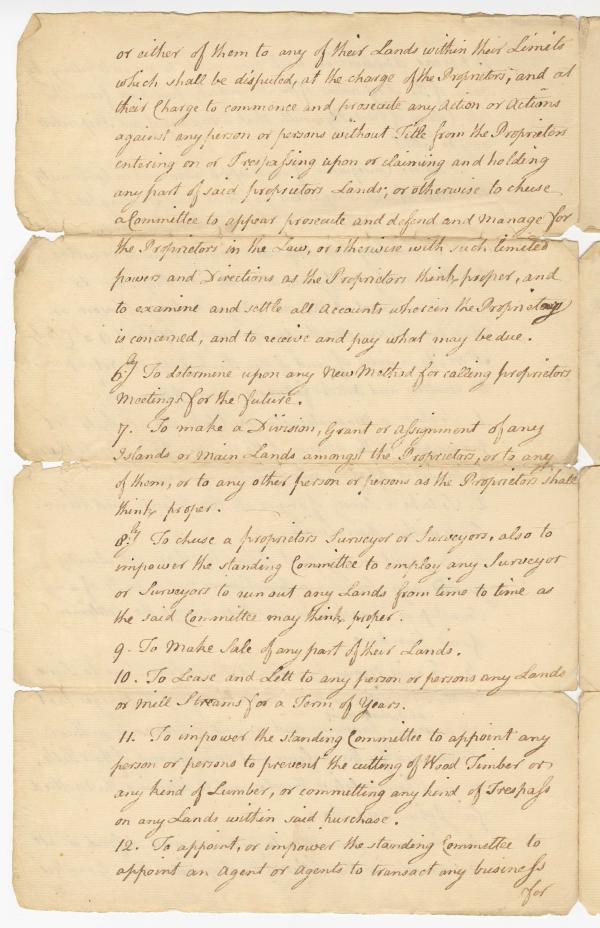 or either of them to any of their Lands within their Limits
which shall be disputed, at the charge of the Proprietors, and at
their Charge to commence and prosecute any Action or Actions
against any person or persons without Title from the Proprietors
entering on or Trespassing upon or claiming and holding
any part of said proprietors Lands, or otherwise to chuse
a Committee to appear prosecute and defend and manage for
the Proprietors in the Law, or otherwise with such limited
powers and Directions as the Proprietors think proper, and
to examine and settle all accounts wherein the Proprietary
is concerned, and to receive and pay what may be due.
6ly To determine upon any New Method for calling proprietors
Meetings for the future.
7. To make a Division, Grant or assignment of any
Islands or Main Lands amongst the Proprietors, or to any
of them, or to any other person or persons as the Proprietors shall
think proper.
8.ly To chuse a proprietors Surveyor or Surveyors, also to
impower the standing Committee to employ any Surveyor
or Surveyors to run out any Lands from time to time as
the said Committee may think proper.
9. To Make Sale of any part of their Lands.
10. To Lease and Lett to any person or persons any Lands
or Mill Streams for a Term of Years.
11. To impower the standing Committee to appoint any
person or persons to prevent the cutting of Wood Timber or
any kind of Lumber, or committing any kind of Trespass
on any Lands within said purchase.
12. To appoint, or impower the standing Committee to
appoint an Agent or Agents to transact any business
for